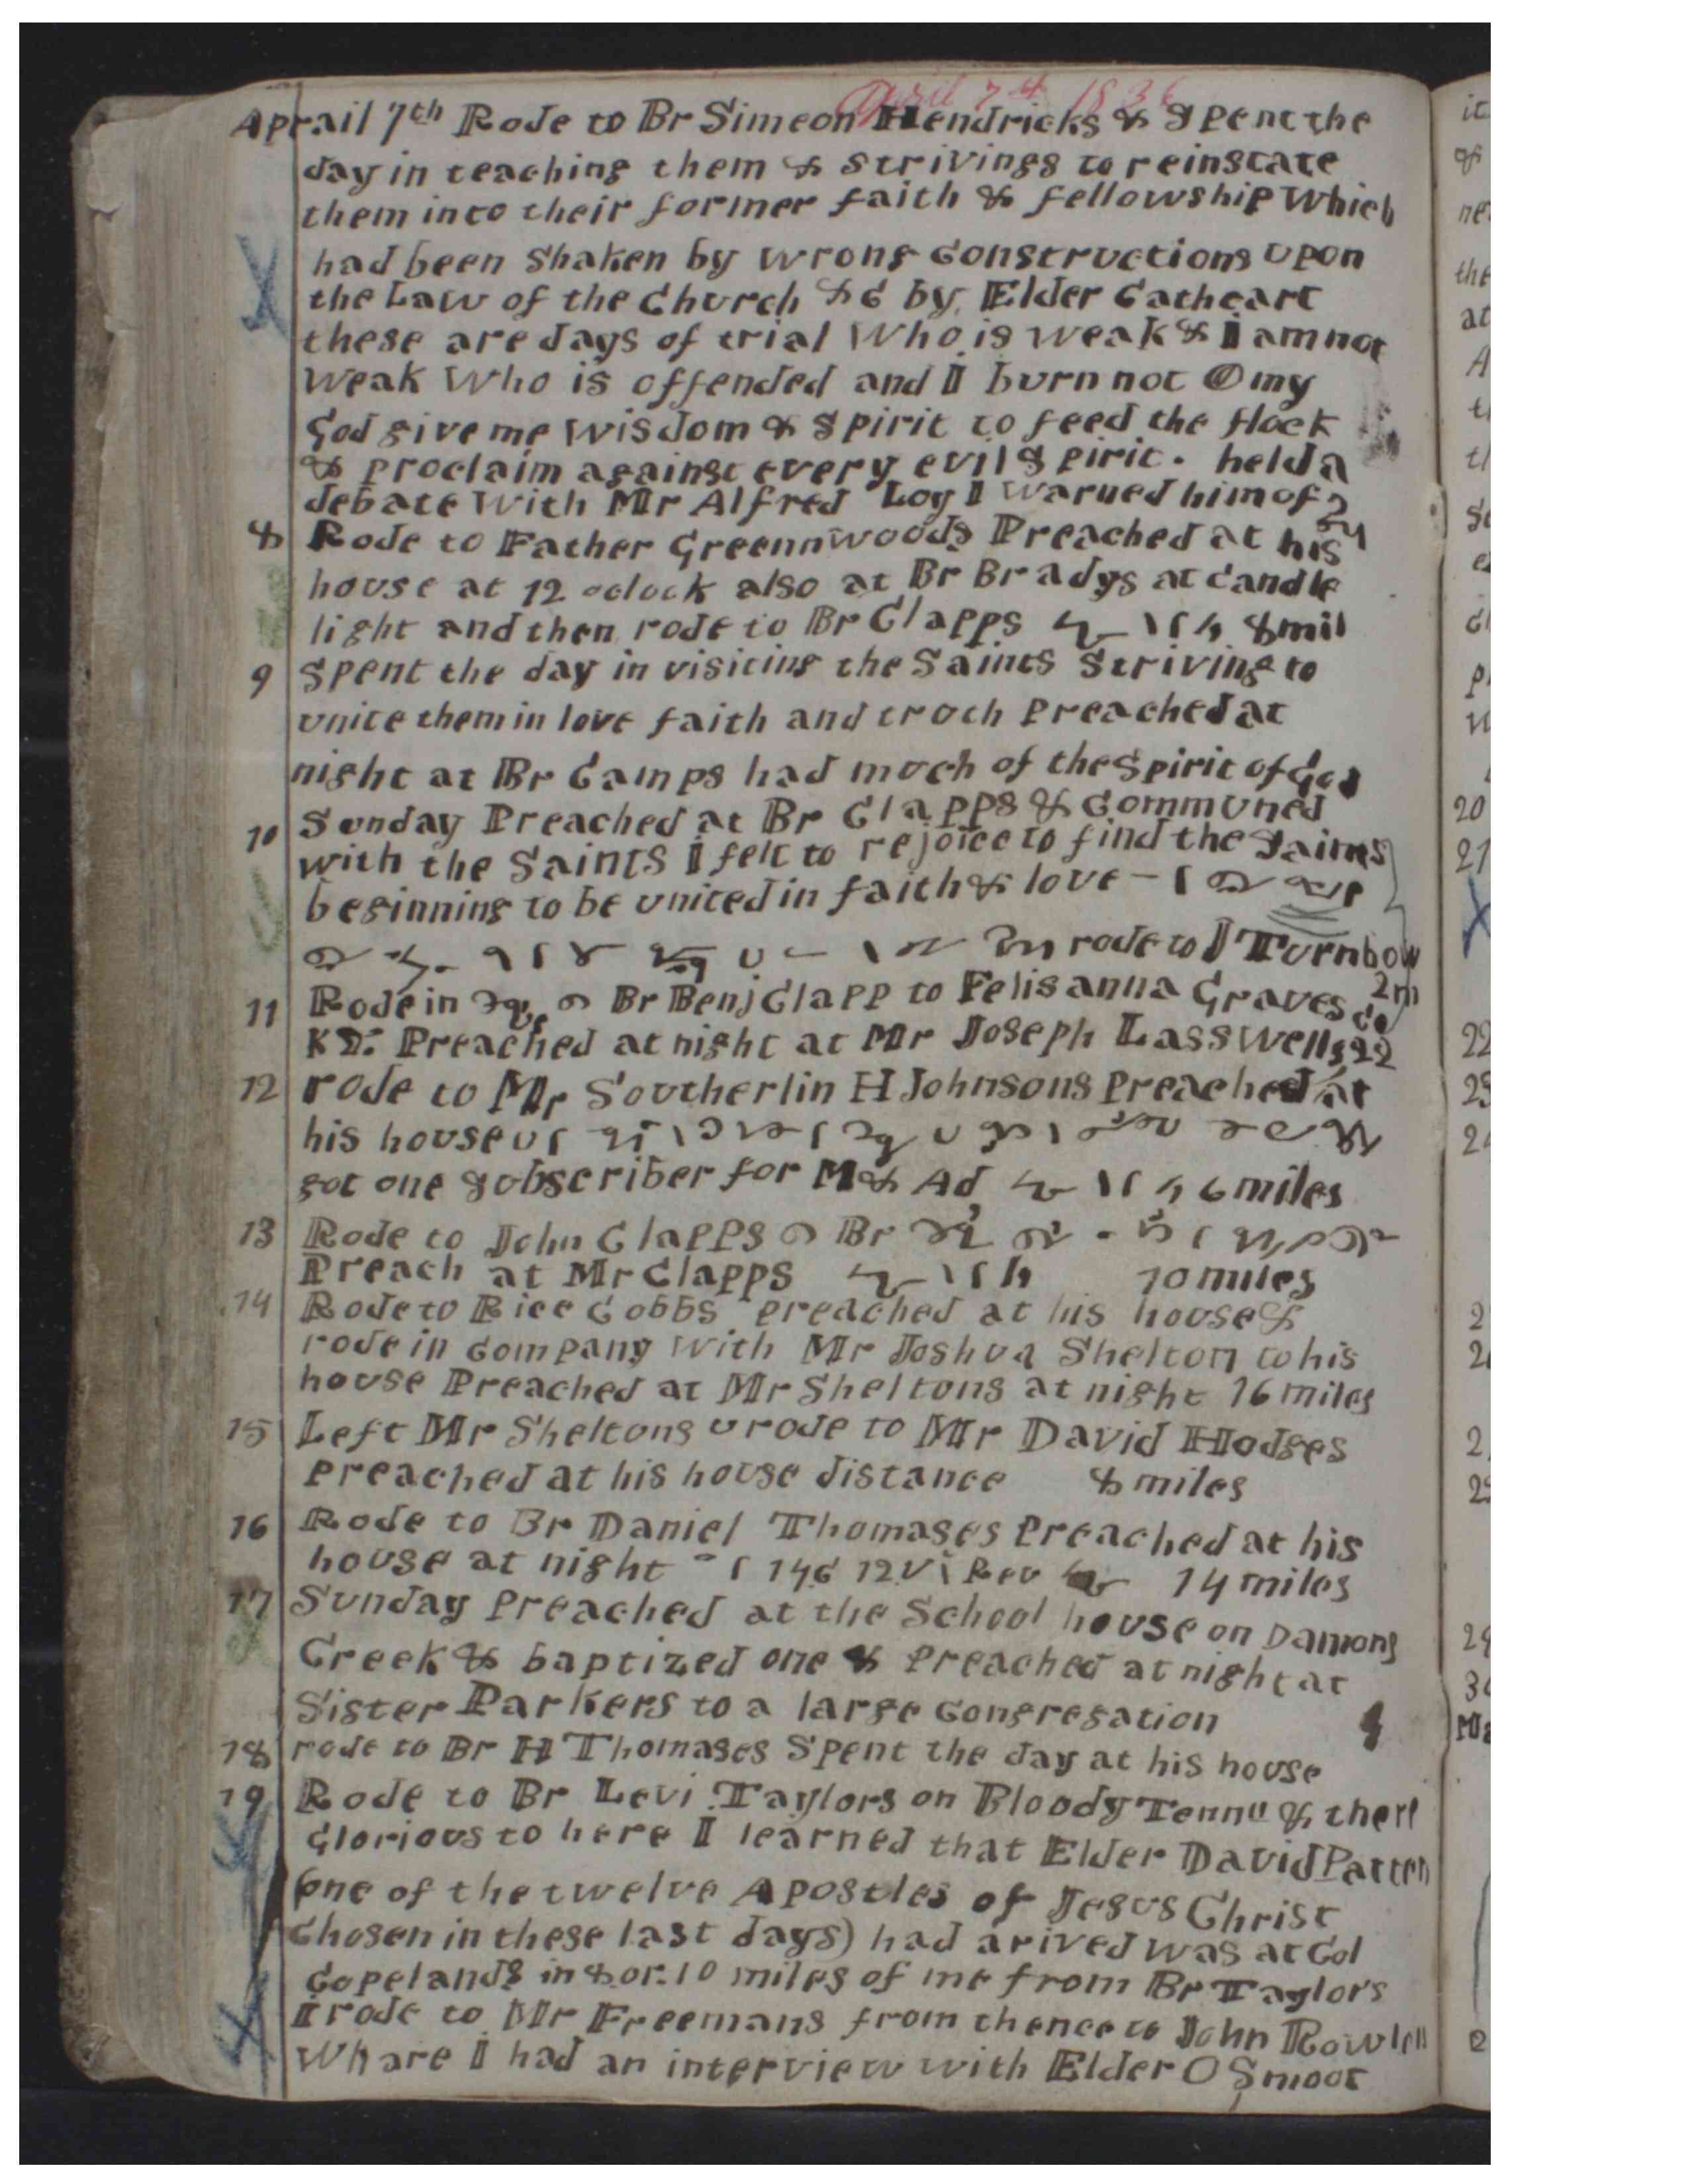 April 7th 1836
Aprail 7th Rode to Br Simeon Hendricks & Spent the
day in teaching them & strivings to reinstate
them into their former faith & fellowship Which
had been Shaken by wrong Constructions upon
the Law of the Church &C by Elder Cathcart
these are days of trial Who is weak & I am not
Weak Who is offended and I burn not O my
God give me Wisdom & Spirit to feed the flock
& proclaim against every evil Spirit. held a
debate With Mr Alfred Loy I warned him of
8 Rode to Father Greennwoods Preached at his
house at 12 oclock also at Br Bradys at Candle
light and then rode to Br Clapps 8 mil
9 Spent the day in visiting the Saints Striving to
unite them in love faith and truth Preached at
night at Br Camps had much of the Spirit of God
10 Sunday Preached at Br Clapps & Communed
with the Saints I felt to rejoice to find the Saints
beginning to be united in faith & love
rode to J Turnbow
2m
11 Rode in Br Benj Clapp to Felisanna Graves Co
KY. Preached at night at Mr Joseph Lasswells 22
12 rode to Mr Southerlin H Johnsons Preached at
his house
got one subscriber for M & Ad 6 miles
13 Rode to John Clapps Br
Preach at Mr Clapps 10 miles
14 Rode to Rice Cobbs preached at his house &
rode in Company with Mr Joshua Shelton to his
house Preached at Mr Sheltons at night 16 miles
15 Left Mr Sheltons rode to Mr David Hodges
Preached at his house distance 8 miles
16 Rode to Br Daniel Thomases Preached at his
house at night 14C 12V Rev 14 miles
17 Sunday Preached at the School house on Damons
Creek & baptized one & Preached at night at
Sister Parkers to a large Congregation
18 rode to Br H Thomases Spent the day at his house
19 Rode to Br Levi Taylors on Bloody Tenn &
Glorious to here I learned that Elder David Patten
(one of the twelve Apostles of Jesus Christ
Chosen in these last days) had arived was at Col
Copelands in 8 or 10 miles of me from Br Taylors
I rode to Mr Freemans from thence to John
Whare I had an interview with Elder O Smoot